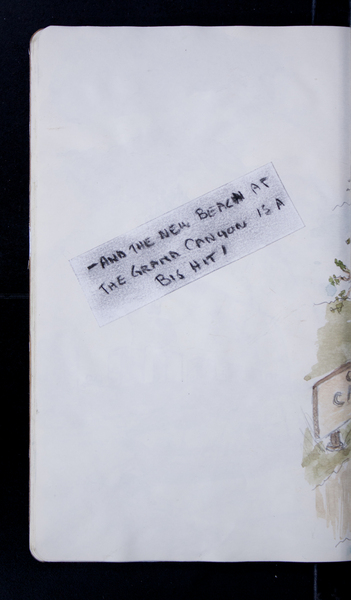 –AND THE NEW BEACH AT
THE GRAND CANYON IS A
BIG HIT!